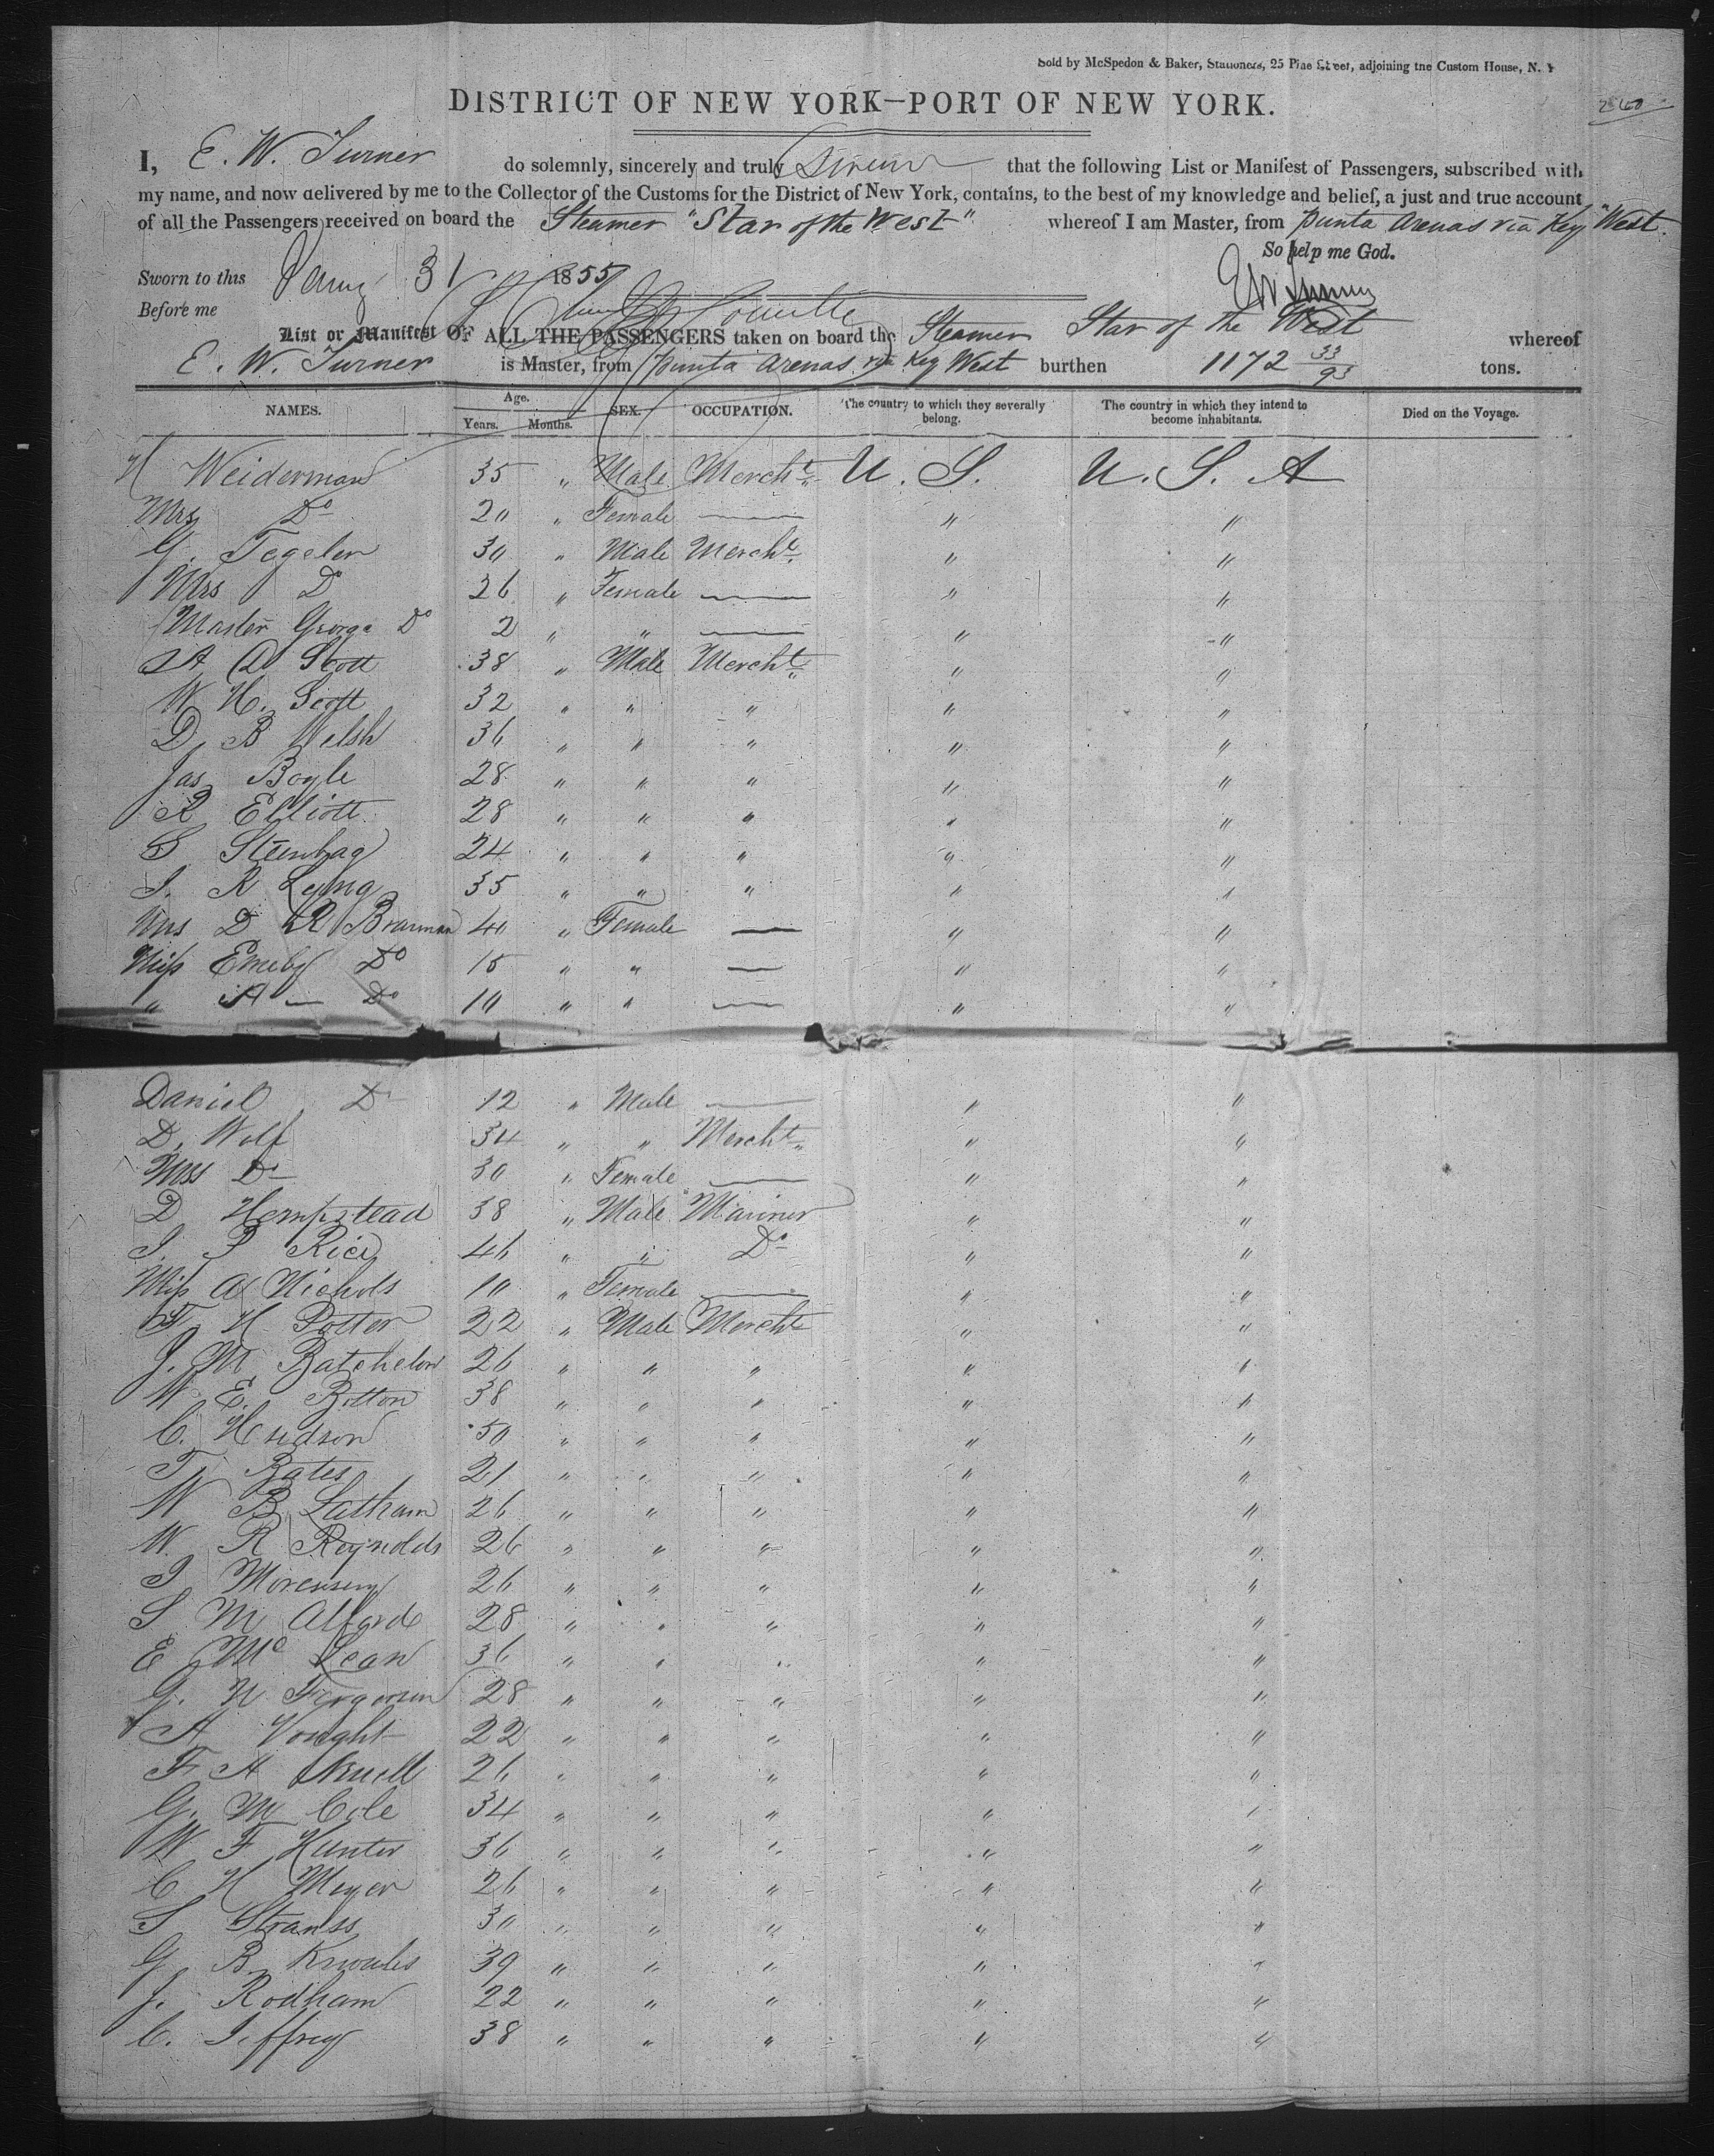 Sold by McSpedon & Baker, Stationers, 25 Pine Street, adjoining the Custom House, N. Y
DISTRICT OF NEW YORK—PORT OF NEW YORK.
I, E. W. Turner do solemnly, sincerely and truly Swear that the following List or Manifest of Passengers, subscribed with
my name, and now delivered by me to the Collector of the Customs for the District of New York, contains, to the best of my knowledge and belief, a just and true account
of all the Passengers received on board the Steamer "Star of the West" whereof I am Master, from Punta Arenas via Key West.
So help me God.
Sworn to this 31 1855
Before me
List or Manifest OF ALL THE PASSENGERS taken on board the Steamer Star of the West whereof
E. W. Turner is Master, from Punta Arenas via Key West burthen 1172 33/95 tons.
NAMES. Age. Years. Months. SEX. OCCUPATION. The country to which they severally belong. The country in which they intend to become inhabitants. Died on the Voyage.
Weiderman 35 " Male Mercht U. S. U. S. A
Mrs Do 20 " Female — " "
G. Tegelen 30 " Male Mercht " "
Mrs Do 26 " Female — " "
Master George Do 2 " " — " "
A D Scott 38 " Male Mercht " "
W H. Scott 32 " " " " "
D. B Welsh 36 " " " " "
Jas Boyle 28 " " " " "
R Elliott 28 " " " " "
S 24 " " " " "
35 " " " " "
Mrs D R 40 " Female — " "
Miss Emely Do 15 " " — " "
" A — Do 10 " " — " "
Daniel Do 12 " Male — " "
D. Wolf 34 " " Mercht " "
Mrs Do 30 " Female — " "
D Hempstead 38 " Male Mariner " "
J. P Rice 46 " " Do " "
Miss A Nichols 10 " Female — " "
F H Potter 22 " Male Mercht " "
J. M Batchelor 26 " " " " "
W E. Botton 38 " " " " "
C. Hudson 50 " " " " "
T. Bates 21 " " " " "
W B. Latham 26 " " " " "
W. R Reynolds 26 " " " " "
26 " " " " "
S M Alford 28 " " " " "
E Mc Lean 36 " " " " "
G. N Fergerson 28 " " " " "
A Vought 22 " " " " "
F A 26 " " " " "
G. M Cole 34 " " " " "
W F Hunter 36 " " " " "
C H Meyer 26 " " " " "
S Strauss 30 " " " " "
G B Knowles 39 " " " " "
J. Rodham 22 " " " " "
C. Jeffrey 38 " " " " "